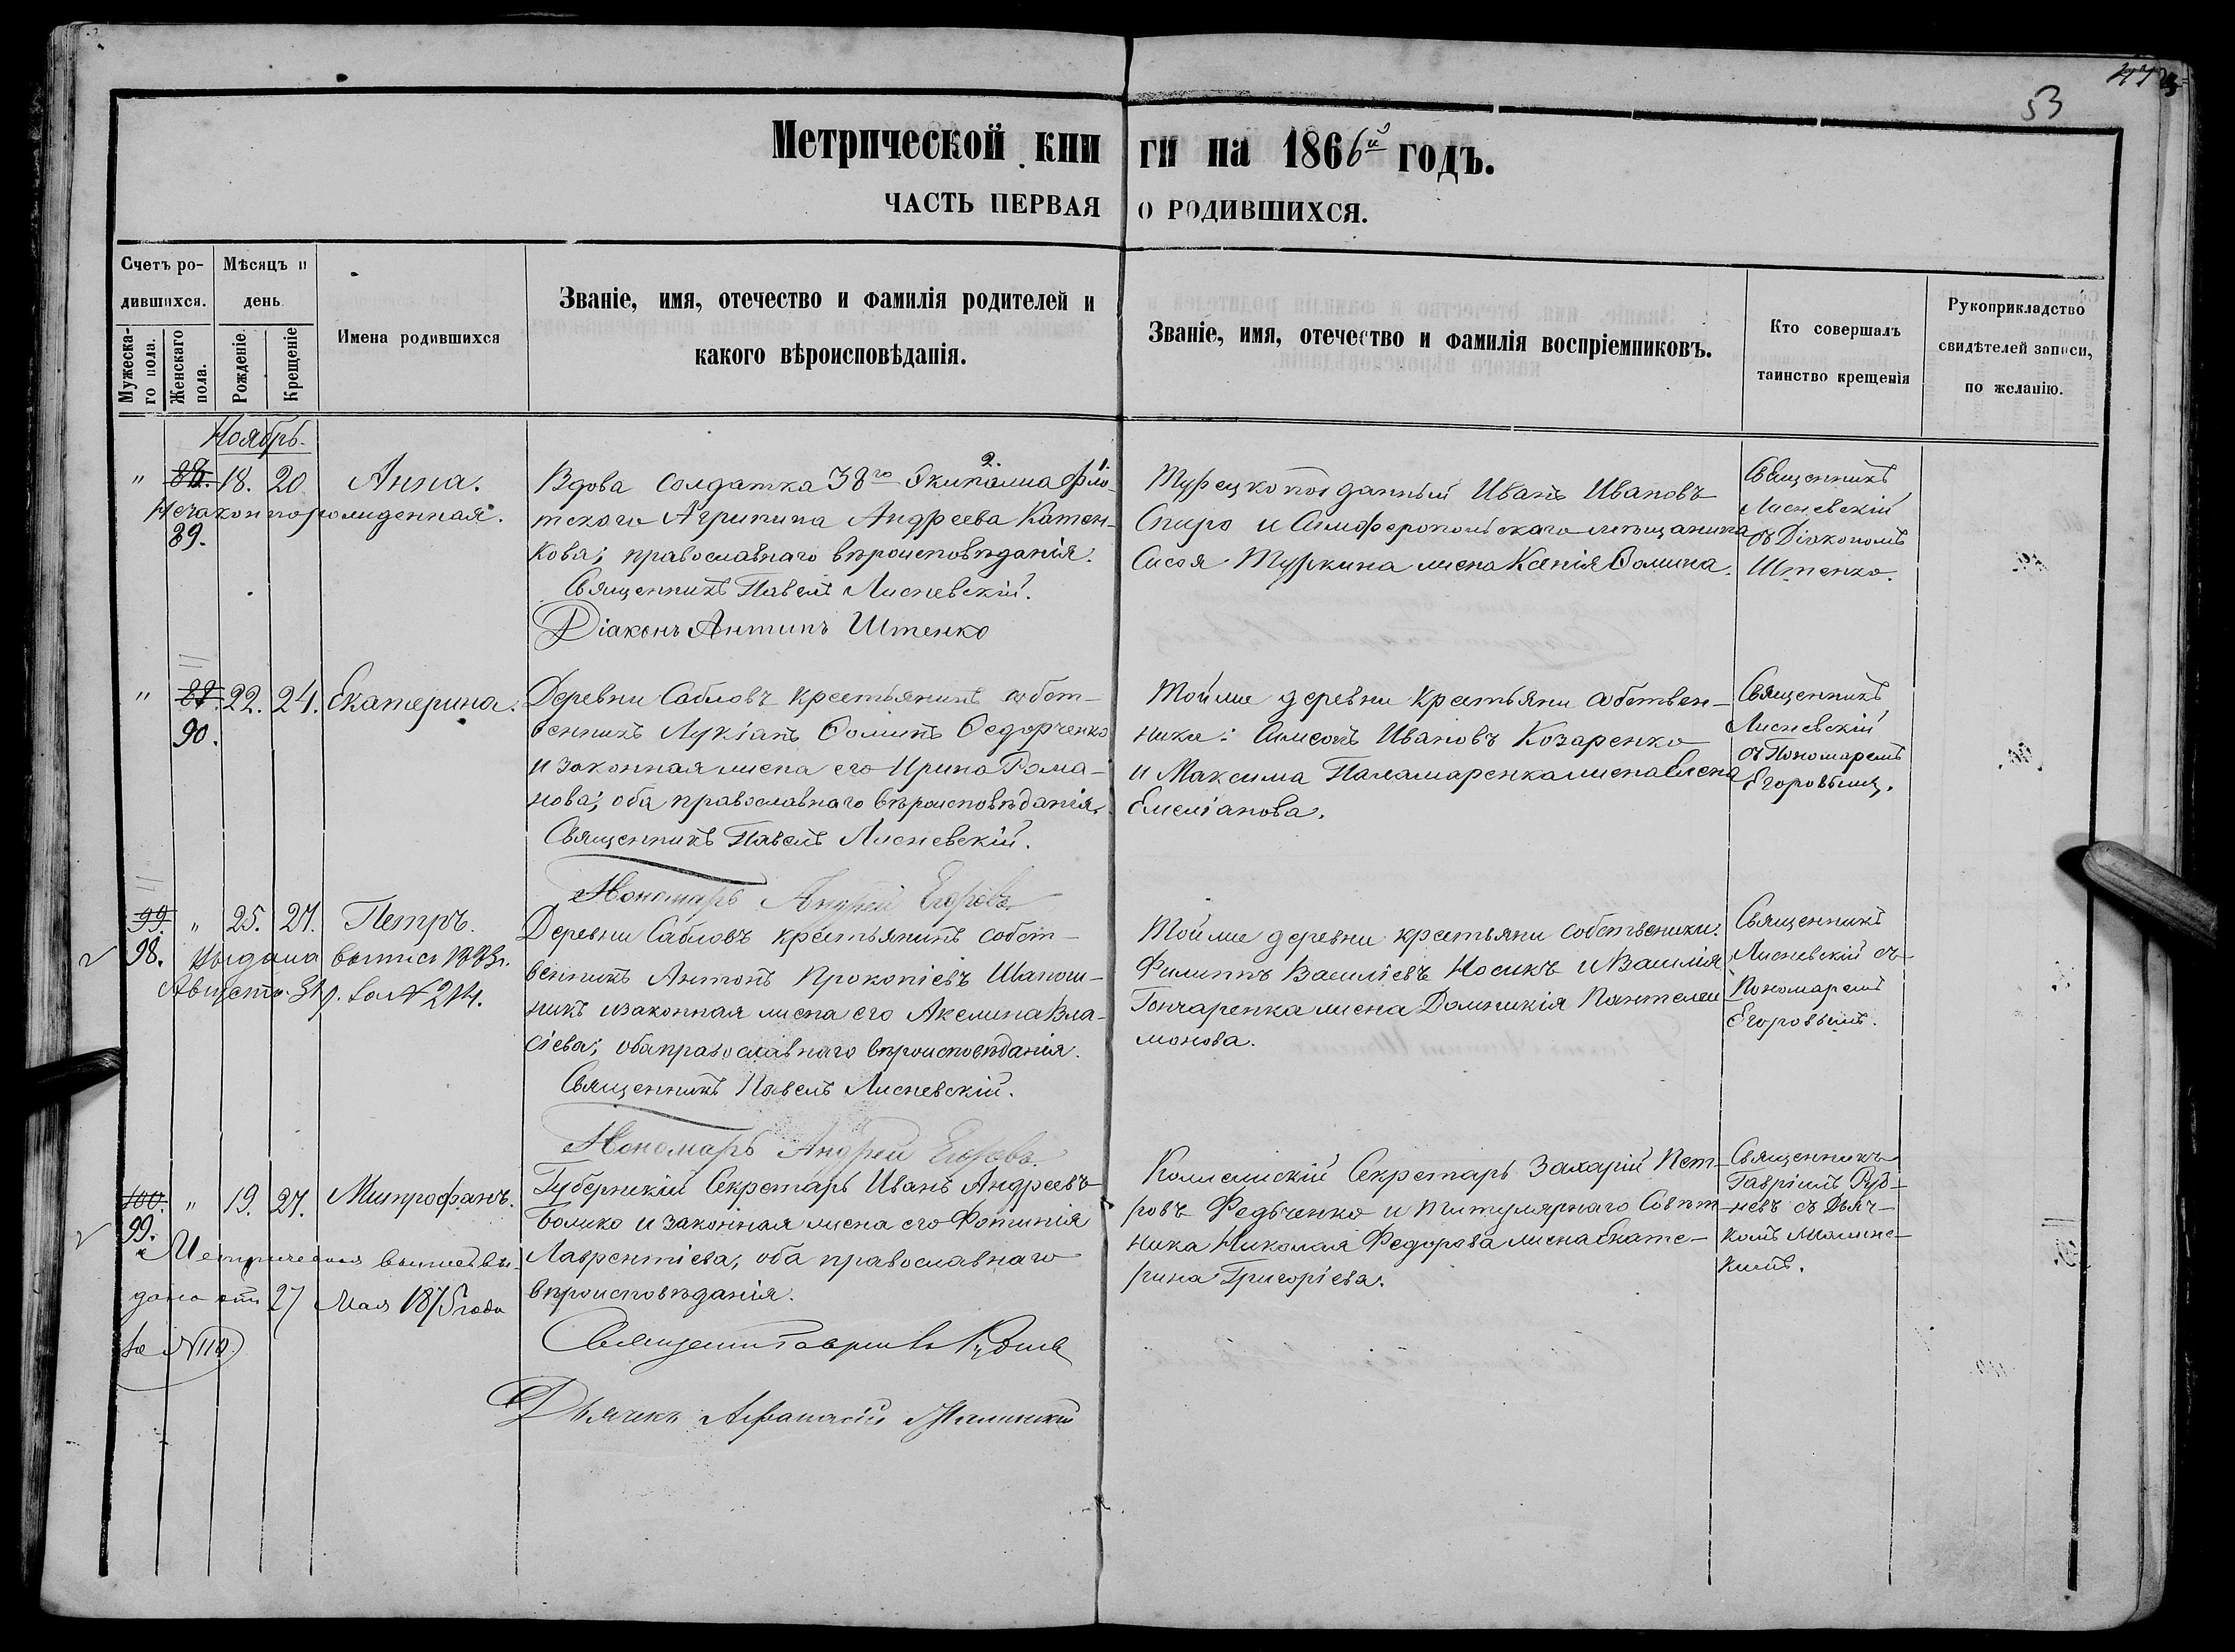 53
Метрической кни ги на 1866й годъ.
ЧАСТЬ ПЕРВАЯ О РОДИВШИХСЯ.
Счетъ ро-
дившихся.
Мужеска-
го пола.
Женскаго
пола.
Мѣсяцъ и
день
Рожденіе.
Крещеніе
Имена родившихся
Званіе, имя, отечество и фамилія родителей и
какого вѣроисповѣданія.
Званіе, имя, отечество и фамилія воспріемниковъ.
Кто совершалъ
таинство крещенія
Рукоприкладство
свидѣтелей записи,
по желанію.
Ноябрь.
" 88. 18. 20 Анна.
Незаконнорожденная.
89.
Вдова солдатка 38го Экипажа Фло-
тского Агрипина Андреева Катен-
кова; православнаго вѣроисповѣданія.
Священникъ Павелъ Лисневскій.
Діаконъ Антипъ Штенко
Турецкоподданный Иванъ Ивановъ
Спиро и Симферопольскаго мѣщанина
Сисоя Туркина жена Ксенія Ѳомина.
Священникъ
Лисневскій
съ Діякономъ
Штенко.
" 22. 24. Екатерина.
90.
Деревни Сабловъ крестьянинъ собст-
венникъ Лукіанъ Ѳоминъ Ѳедорченко
и законная жена его Ирина Рома-
нова; оба православнаго вѣроисповѣданія.
Священникъ Павелъ Лисневскій.
Пономарь Андрей Егоровъ
Той же деревни крестьяни собствен-
ники: Симеонъ Ивановъ Козаренко
и Максима Паламаренка жена Елена
Емеліанова.
Священникъ
Лисневскій
съ Пономаремъ
Егоровымъ.
99. " 25. 27. Петръ.
98. Выдана выпись 1883г.
Августа 31д. за № 214.
Деревни Сабловъ крестьянинъ собст-
венникъ Антонъ Прокопіевъ Шапош-
никъ и законная жена его Акелина Вла-
сіева; оба православнаго вѣроисповѣданія.
Священникъ Павелъ Лисневскій.
Пономарь Андрей Егоровъ
Той же деревни крестьяни собственики:
Филиппъ Василіевъ Носикъ и Василія
Гончаренка жена Домникія Пантелей-
монова.
Священникъ
Лисневскій съ
Пономаремъ
Егоровымъ.
100. " 19. 27. Митрофанъ.
99.
Метрическая выпись вы-
дана отъ 27 Мая 1875 года
за №110
Губернскій Секретарь Иванъ Андреевъ
Бошко и законная жена его Фотинія
Лаврентіева, оба православнаго
вѣроисповѣданія.
Священникъ Гавріилъ Руднев
Дьячекъ Афанасій
Коллежскій Секретарь Захарій Пет-
ровъ Федьченко и титулярнаго Совѣт-
ника Николая Федорова жена Екате-
рина Григоріева.
Священникъ
Гавріилъ Руд-
невъ съ Дьяч-
комъ